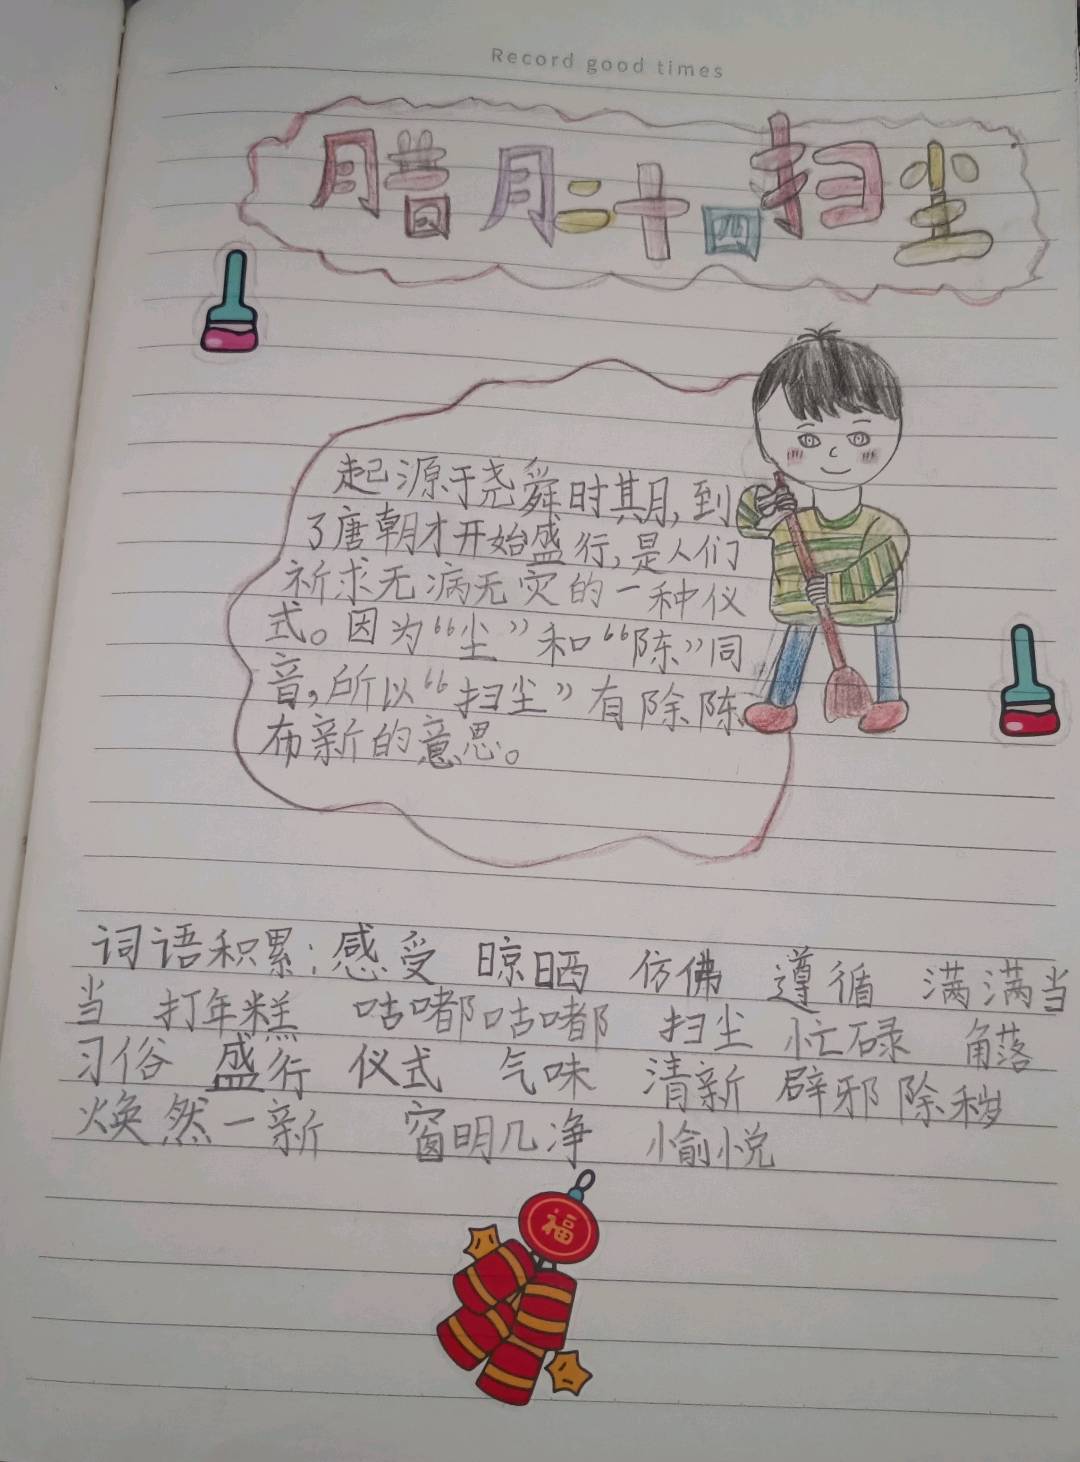 Record good times
腊月二十四扫尘
起源于尧舜时期,到
了唐朝才开始盛行,是人们
祈求无病无灾的一种仪
式。因为“尘”和“陈”同
音,所以“扫尘”有除陈
布新的意思。
词语积累:感受 晾晒 仿佛 遵循 满满当
当 打年糕 咕嘟咕嘟 扫尘 忙碌 角落
习俗 盛行 仪式 气味 清新 辟邪除秽
焕然一新 窗明几净 愉悦
福